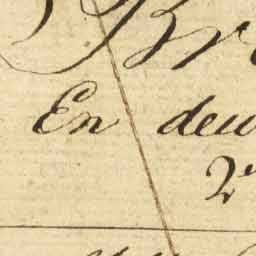 Br
En deu
2e